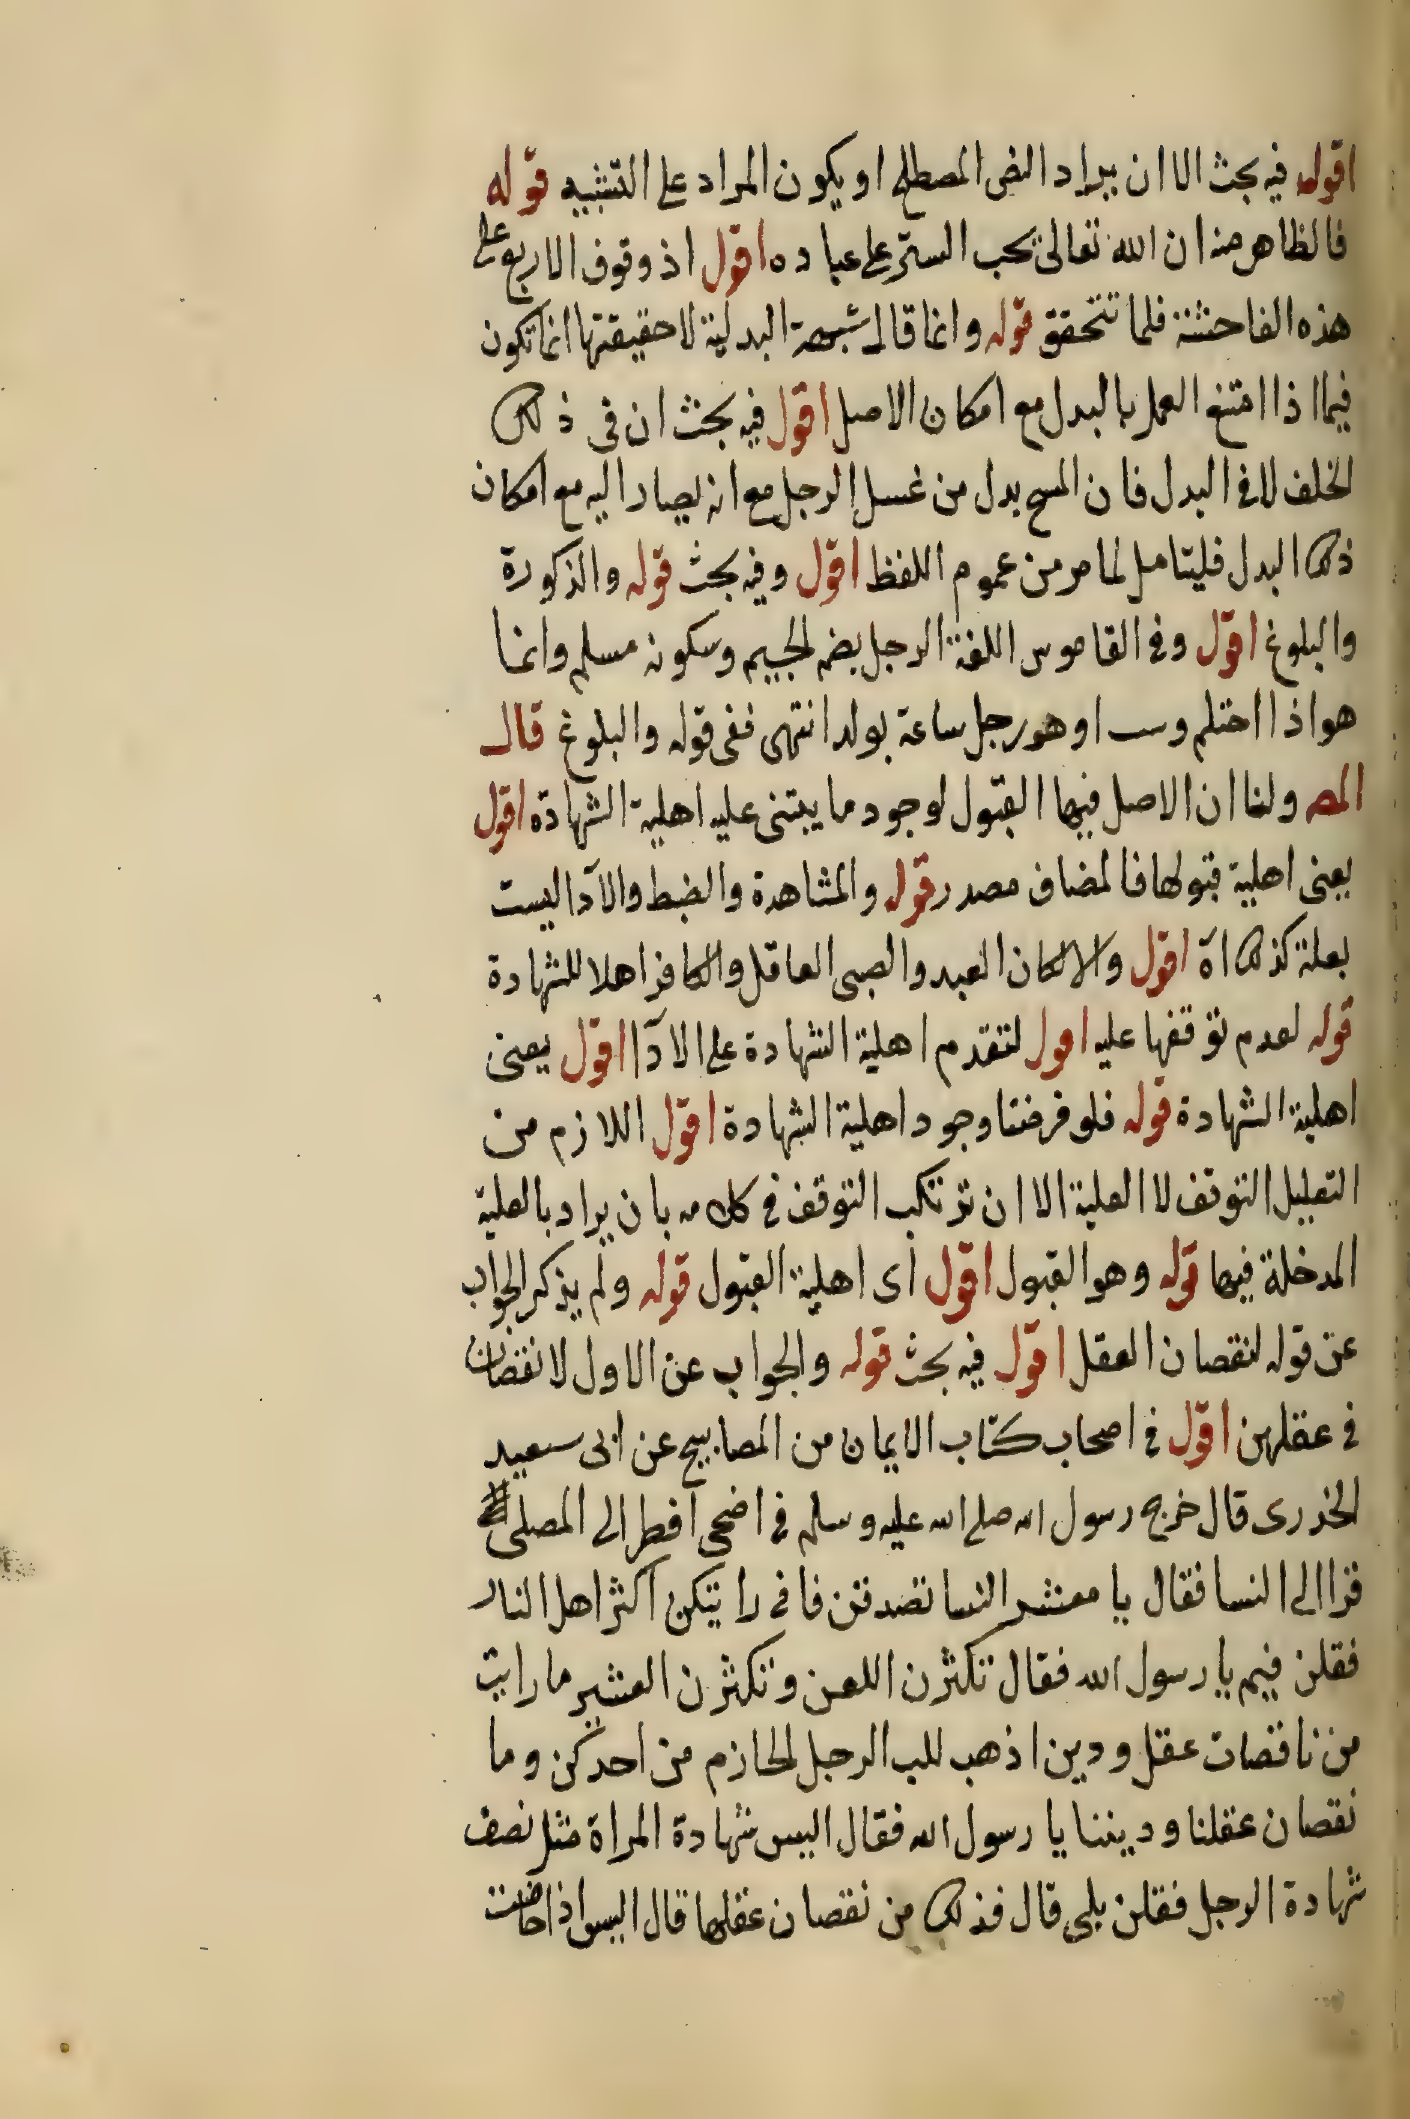 اقول فيه بحث الا ان يراد النص المصطلح او يكون المراد على التشبيه قوله
فالظاهر منه ان الله تعالى يحب الستر على عباده اقول اذ وقوف الاربع على
هذه الفاحشة فلما تتحقق قوله وانما قال شبهة البدلية لا حقيقتها انما تكون
فيما اذا امتنع العمل بالبدل مع امكان الاصل اقول فيه بحث ان في ذلك
الخلف لا في البدل فان المسح بدل من غسل الرجل مع انه يصار اليه مع امكان
ذلك البدل فليتامل لما مر من عموم اللفظ اقول وفيه بحث قوله والذكورة
والبلوغ اقول وفي القاموس اللغة الرجل بضم الجيم وسكونه مسلم وانما
هو اذا احتلم وسب او هو رجل ساعة يولد انتهى ففي قوله والبلوغ قال
المصـ ولنا ان الاصل فيها القبول لوجود ما يبتنى عليه اهلية الشهادة اقول
يعنى اهلية قبولها فالمضاف مصدر قوله والمشاهدة والضبط والآدا ليست
بعلة كذلك اه اقول والا لكان العبد والصبى العاقل والكافر اهلا للشهادة
قوله لعدم توقفها عليه اقول لتقدم اهلية الشهادة على الآدا اقول يعنى
اهلية الشهادة قوله فلو فرضنا وجود اهلية الشهادة اقول اللازم من
التعليل التوقف لا العلية الا ان نرتكب التوقف في كلامه بان يراد بالعلية
المدخلة فيها قوله وهو القبول اقول اى اهلية القبول قوله ولم يذكر الجواب
عن قوله لنقصان العقل اقول فيه بحث قوله والجواب عن الاول لا نقصان
في عقلهن اقول في اصحاب كتاب الايمان من المصابيح عن ابى سعيد
الخدرى قال خرج رسول الله صلى الله عليه وسلم في اضحى افطر الى المصلى
فرا الى النسا فقال يا معشر النسا تصدقن فانى رايتكن اكثر اهل النار
فقلن فيم يا رسول الله فقال تكثرن اللعن وتكثرن العشير ما رايت
من ناقصات عقل ودين اذهب للب الرجل الحازم من احدكن وما
نقصان عقلنا وديننا يا رسول الله فقال اليس شهادة المراة مثل نصف
شهادة الرجل فقلن بلى قال فذلك من نقصان عقلها قال اليس اذا حاضت